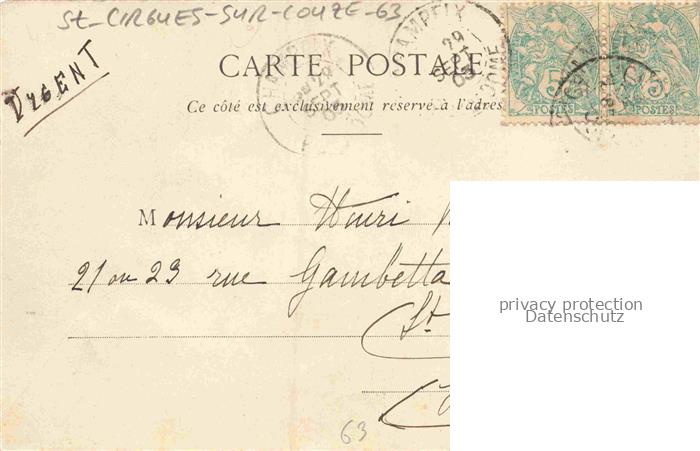 St-CIRGUES-SUR-COUZE-63
CHAMPEIX
29
SEPT
03
DOME
5 5
POSTES POSTES
Urgent
CARTE POSTALE
Ce côté est exclusivement réservé à l'adres
Monsieur Henri
21 ou 23 rue Gambetta
St
63
privacy protection
Datenschutz